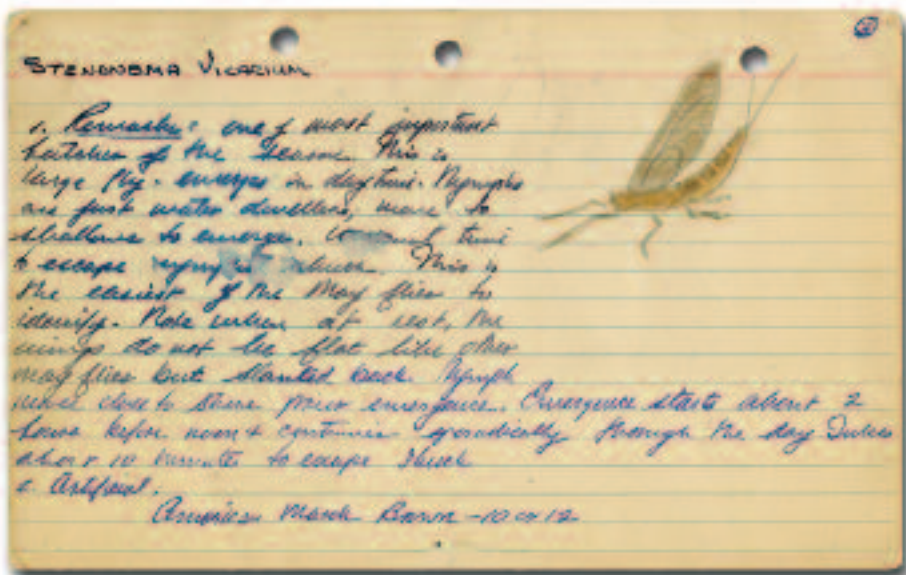 STENONEMA VICARIUM
1. Remarks: one of most important
hatches of the season. This is
large fly - emerges in daytime. Nymphs
are fast water dwellers, move to
shallows to emerge. time
to escape This is
the easiest of the May flies to
identify. Note when at rest, the
wings do not lie flat like other
may flies but slanted back. Nymph
close to shore prior emergence. Emergence starts about 2
hours before noon & continues sporadically through the day Takes
about 10 minutes to escape shuck
2. Artificial.
American March Brown - 10 or 12